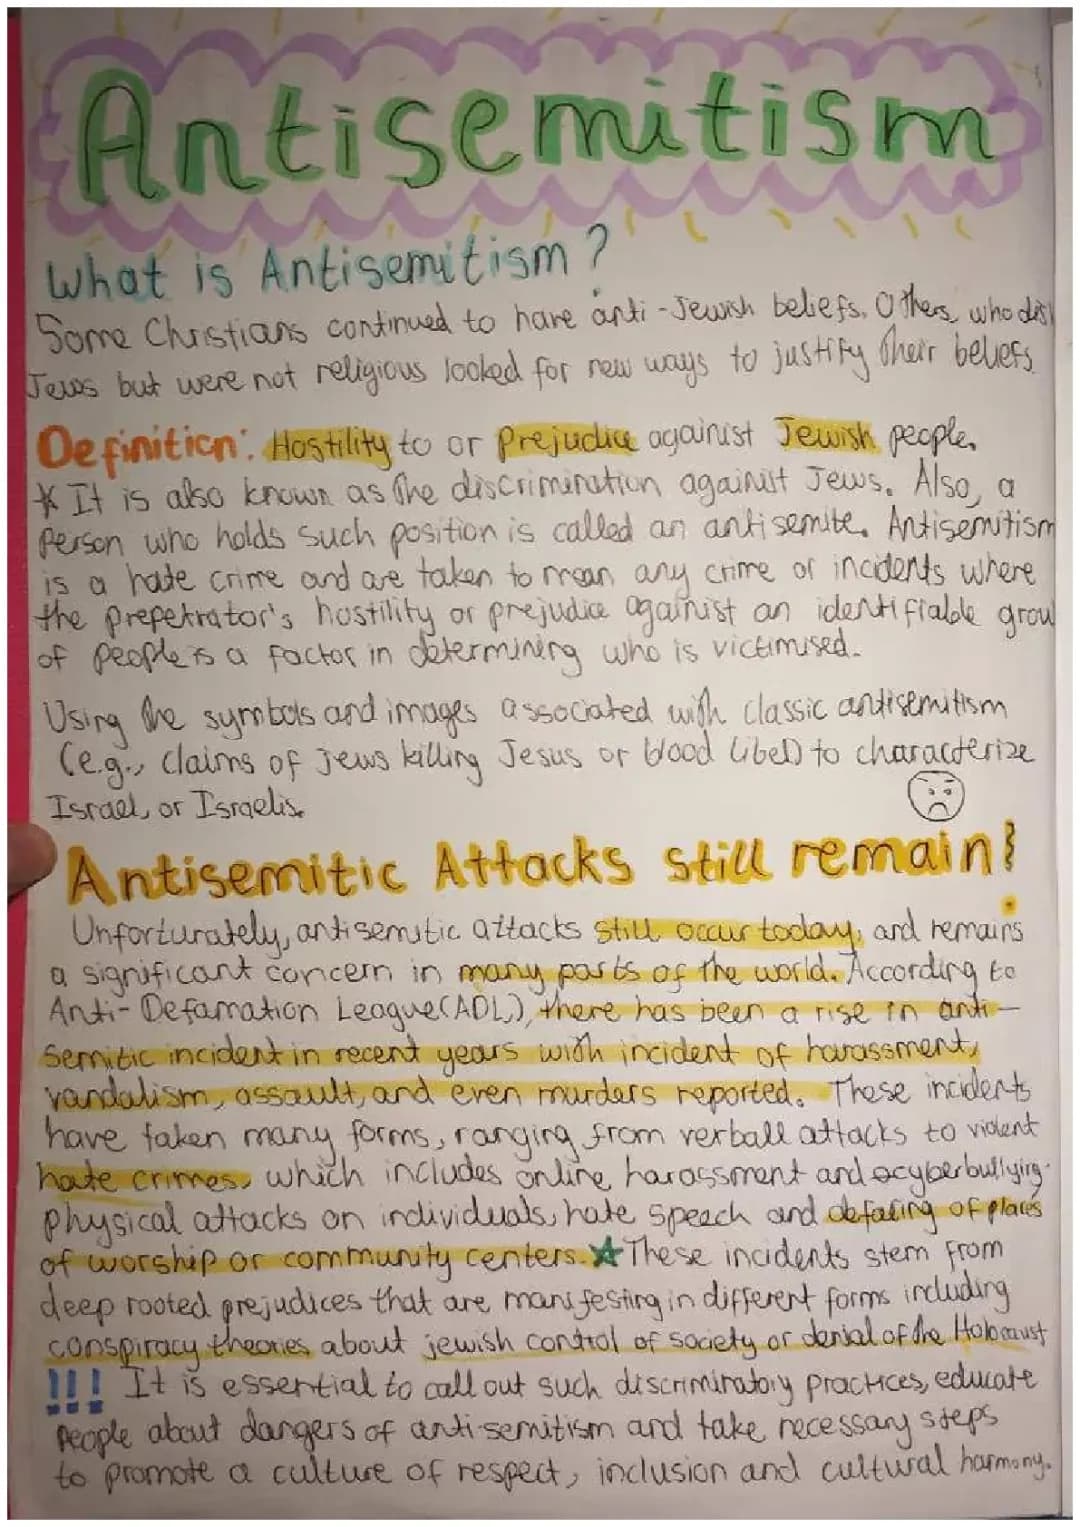 Antisemitism
What is Antisemitism?
Some Christians continued to have anti-Jewish beliefs. Others who disl
Jews but were not religious looked for new ways to justify their beliefs.
Definition: Hostility to or Prejudice against Jewish people.
* It is also known as the discrimination against Jews. Also, a
Person who holds such position is called an antisemite. Antisemitism
is a hate crime and are taken to mean any crime or incidents where
the prepetrator's hostility or prejudice against an identifiable grou
of people is a factor in determining who is victimised.
Using the symbols and images associated with classic antisemitism
(e.g., claims of Jews killing Jesus or blood libel) to characterize
Israel, or Israelis.
Antisemitic Attacks still remain!
Unfortunately, antisemitic attacks still occur today, and remains
a significant concern in many parts of the world. According to
Anti-Defamation League(ADL), there has been a rise in anti-
semitic incident in recent years with incident of harassment,
vandalism, assault, and even murders reported. These incidents
have taken many forms, ranging from verball attacks to violent
hate crimes, which includes online harassment and cyberbullying.
physical attacks on individuals, hate speech and defacing of places
of worship or community centers. ☆ These incidents stem from
deep rooted prejudices that are manifesting in different forms including
conspiracy theories about jewish control of society or denial of the Holocaust
!!! It is essential to call out such discriminatory practices, educate
People about dangers of anti-semitism and take necessary steps
to promote a culture of respect, inclusion and cultural harmony.